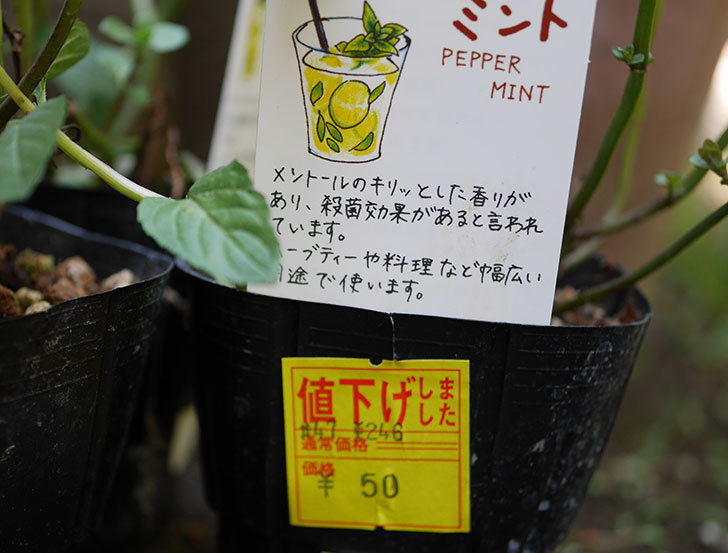 ミント
PEPPER
MINT
メントールのキリッとした香りが
あり、殺菌効果があると言われ
ています。
ーブティーや料理など幅広い
用途で使います。
値下げしました
#47 ¥246
通常価格
価格
¥ 50